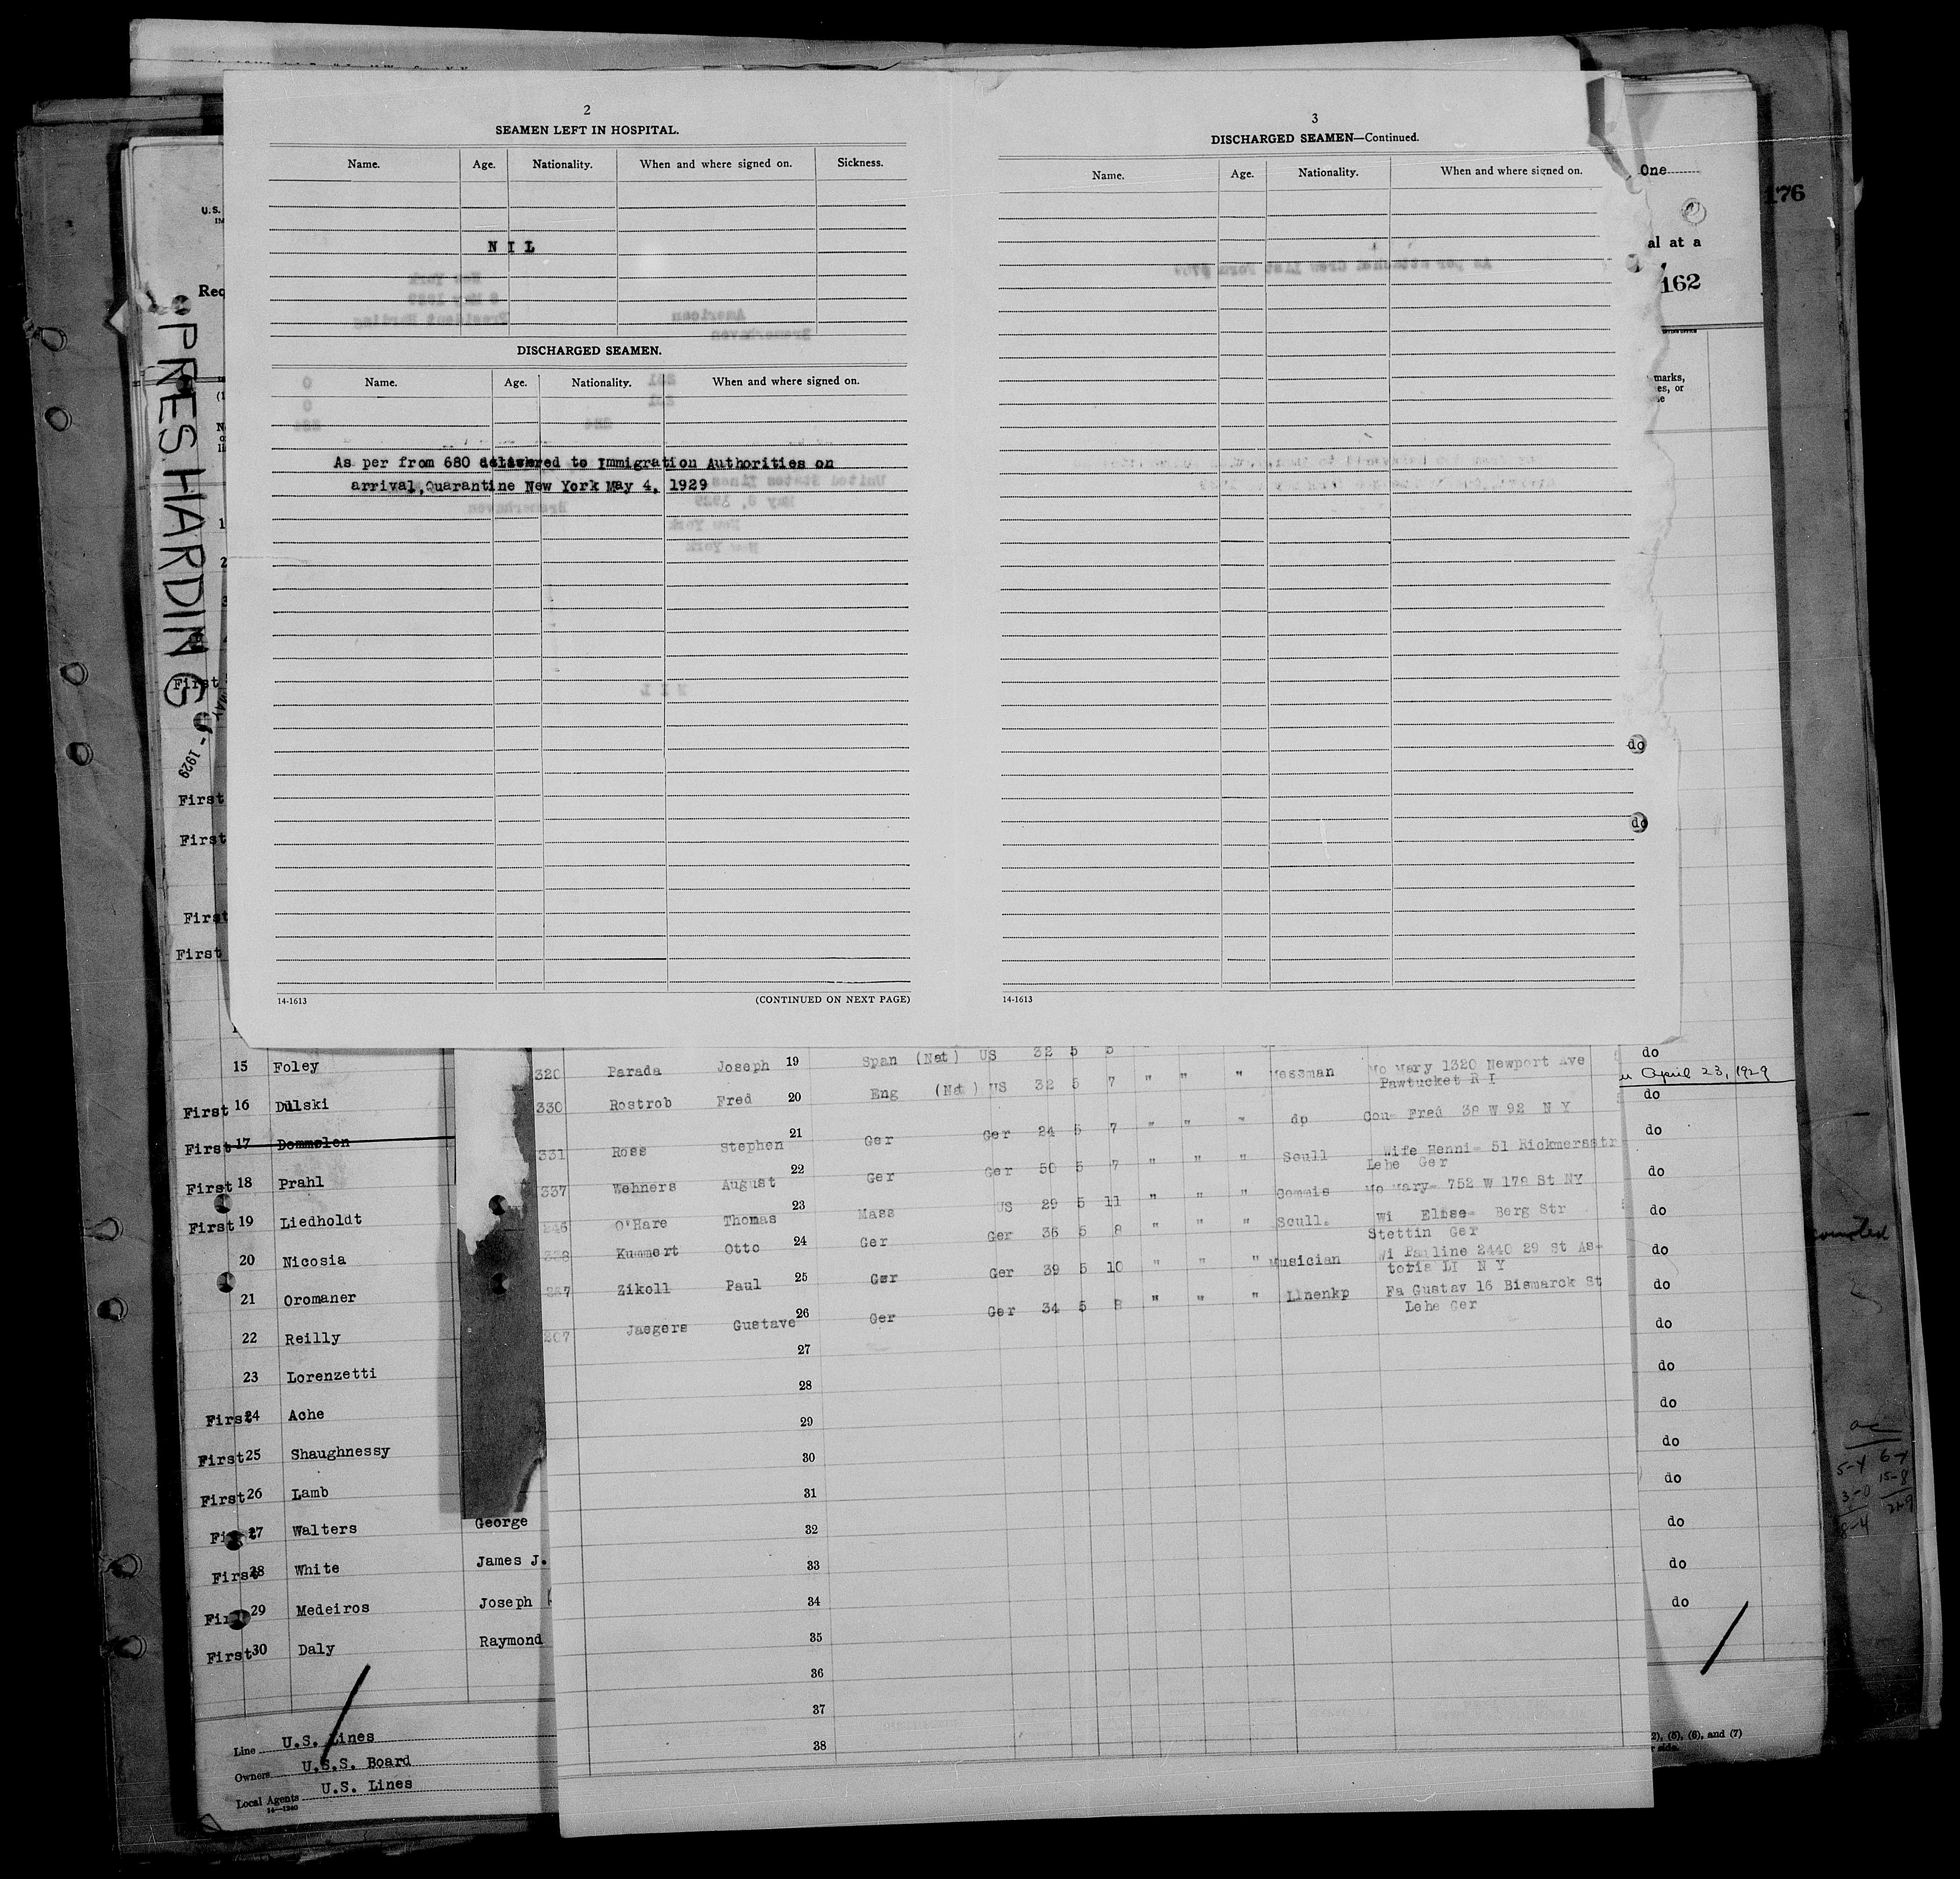 2
SEAMEN LEFT IN HOSPITAL.
Name. Age. Nationality. When and where signed on. Sickness.
N I L
DISCHARGED SEAMEN.
Name. Age. Nationality. When and where signed on.
As per from 680 delivered to Immigration Authorities on
arrival, Quarantine New York May 4, 1929
14-1613 (CONTINUED ON NEXT PAGE)
3
DISCHARGED SEAMEN—Continued.
Name. Age. Nationality. When and where signed on.
14-1613
One
176
al at a
162
marks,
es, or
U.S.
Req
PRES HARDING
1929
First
First
First
First
First
do
do
15 Foley
First 16 Dulski
First 17 Dommolen
First 18 Prahl
First 19 Liedholdt
20 Nicosia
21 Oromaner
22 Reilly
23 Lorenzetti
First 24 Ache
First 25 Shaughnessy
First 26 Lamb
First 27 Walters George
First 28 White James J.
First 29 Medeiros Joseph
First 30 Daly Raymond
Line U.S. Lines
Owners U.S.S. Board
Local Agents U.S. Lines
14-1240
320 Parada Joseph 19 Span (Nat) US 32 5 5 " " " Messman Mo Mary 1320 Newport Ave
Pawtucket R I
330 Rostrob Fred 20 Eng (Nat) US 32 5 7 " " " do Cou- Fred 38 W 92 N Y
331 Ross Stephen 21 Ger Ger 24 5 7 " " " Scull Wife Henni- 51 Rickmersstr
Lehe Ger
337 Wehners August 22 Ger Ger 50 5 7 " " " Commis Mo Mary- 752 W 178 St NY
O'Hare Thomas 23 Mass US 29 5 11 " " " Scull. Wi Elise- Berg Str
Stettin Ger
Kummert Otto 24 Ger Ger 36 5 8 " " " Musician Wi Pauline 2440 29 St As-
toria LI N Y
Zikoll Paul 25 Ger Ger 39 5 10 " " " Linenkp Fa Gustav 16 Bismarck St
Lehe Ger
207 Jaegers Gustave 26 Ger Ger 34 5 8 " " "
27
28
29
30
31
32
33
34
35
36
37
38
do
April 23, 1929
do
do
do
do
do
do
do
do
do
do
do
do
do
do
(5), (6), and (7)